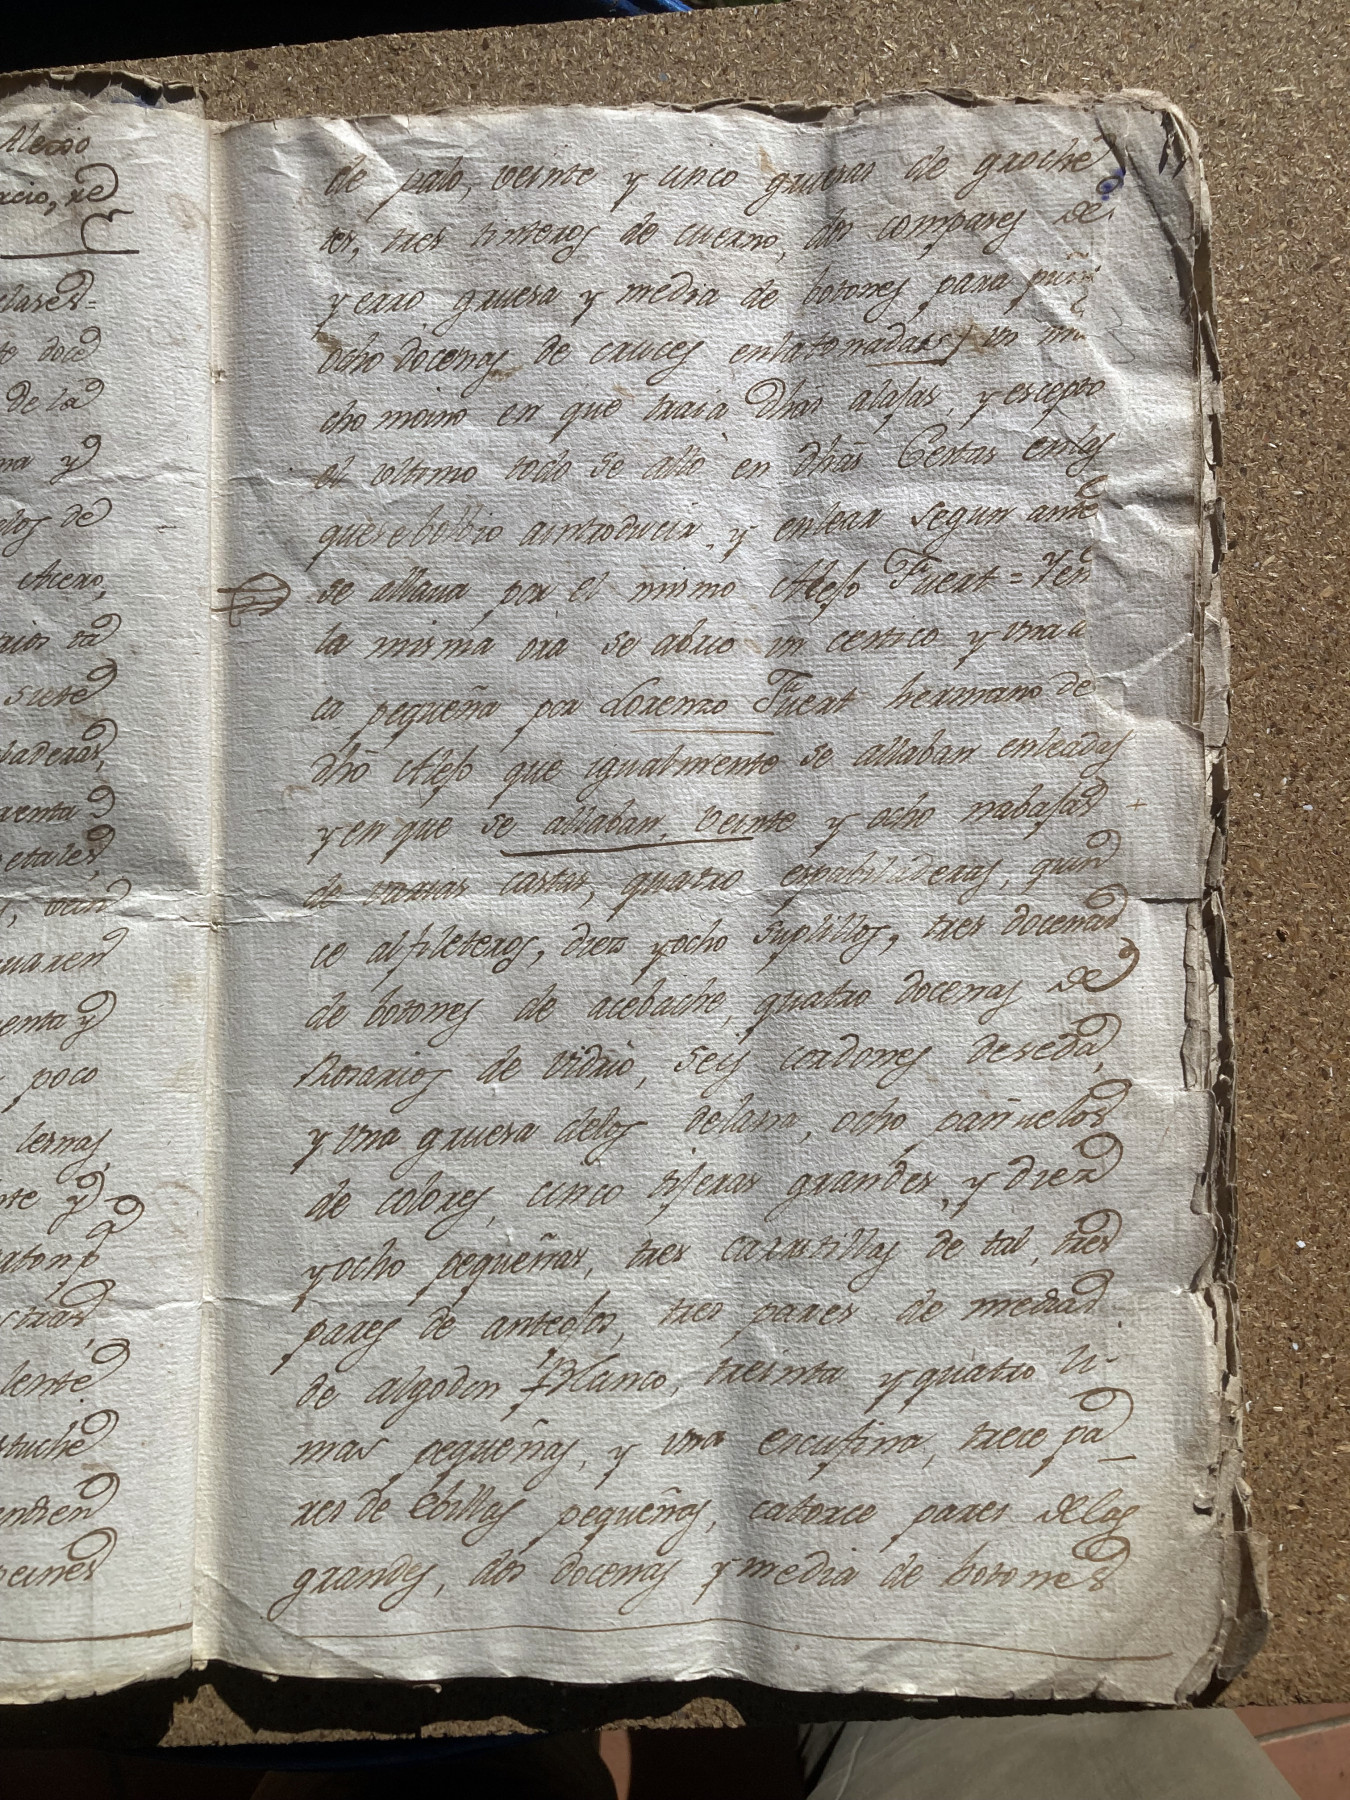 Alexo
rcio, re
lares=
te doce
de la
na y
dos de
Acero,
siete
baderas,
venta
poco
lernas
nte y
lente
stuche
peines
de palo, veinte y cinco gruesas de groche
tes, tres tinteros de cuerno, dos compases de
yerro, gruesa y media de botones para puñ
ocho docenas de cruces enlatonadas, un ma
cho moino en que traia dhas alajas, y escepto
el ultimo todo se alló en dhas Cestas en las
que se bolbio a introducir, y enlear segun ante
se allava por el mismo Alejo Fuert = Y en
la misma ora se abrio un cestico y una a
ca pequeña por Lorenzo Fuert hermano de
dho Alejo que igualmente se allaban enleadas
y en que se allaban, veinte y ocho nabajas
de varias castas, quatro espabiladeras, quin
ce alfileteros, diez y ocho suplillos, tres docenas
de botones de acebache, quatro docenas de
Rosarios de vidrio, seis cordones de seda,
y una gruesa de los de lana, ocho pañuelos
de colores, cinco tijeras grandes, y diez
y ocho pequeñas, tres canastillas de tal, tres
pares de anteojos, tres pares de medias
de algodon Blanco, treinta y quatro li-
mas pequeñas, y una escofina, trece pa
res de Ebillas pequeñas, catorce pares de las
grandes, dos docenas y media de botones